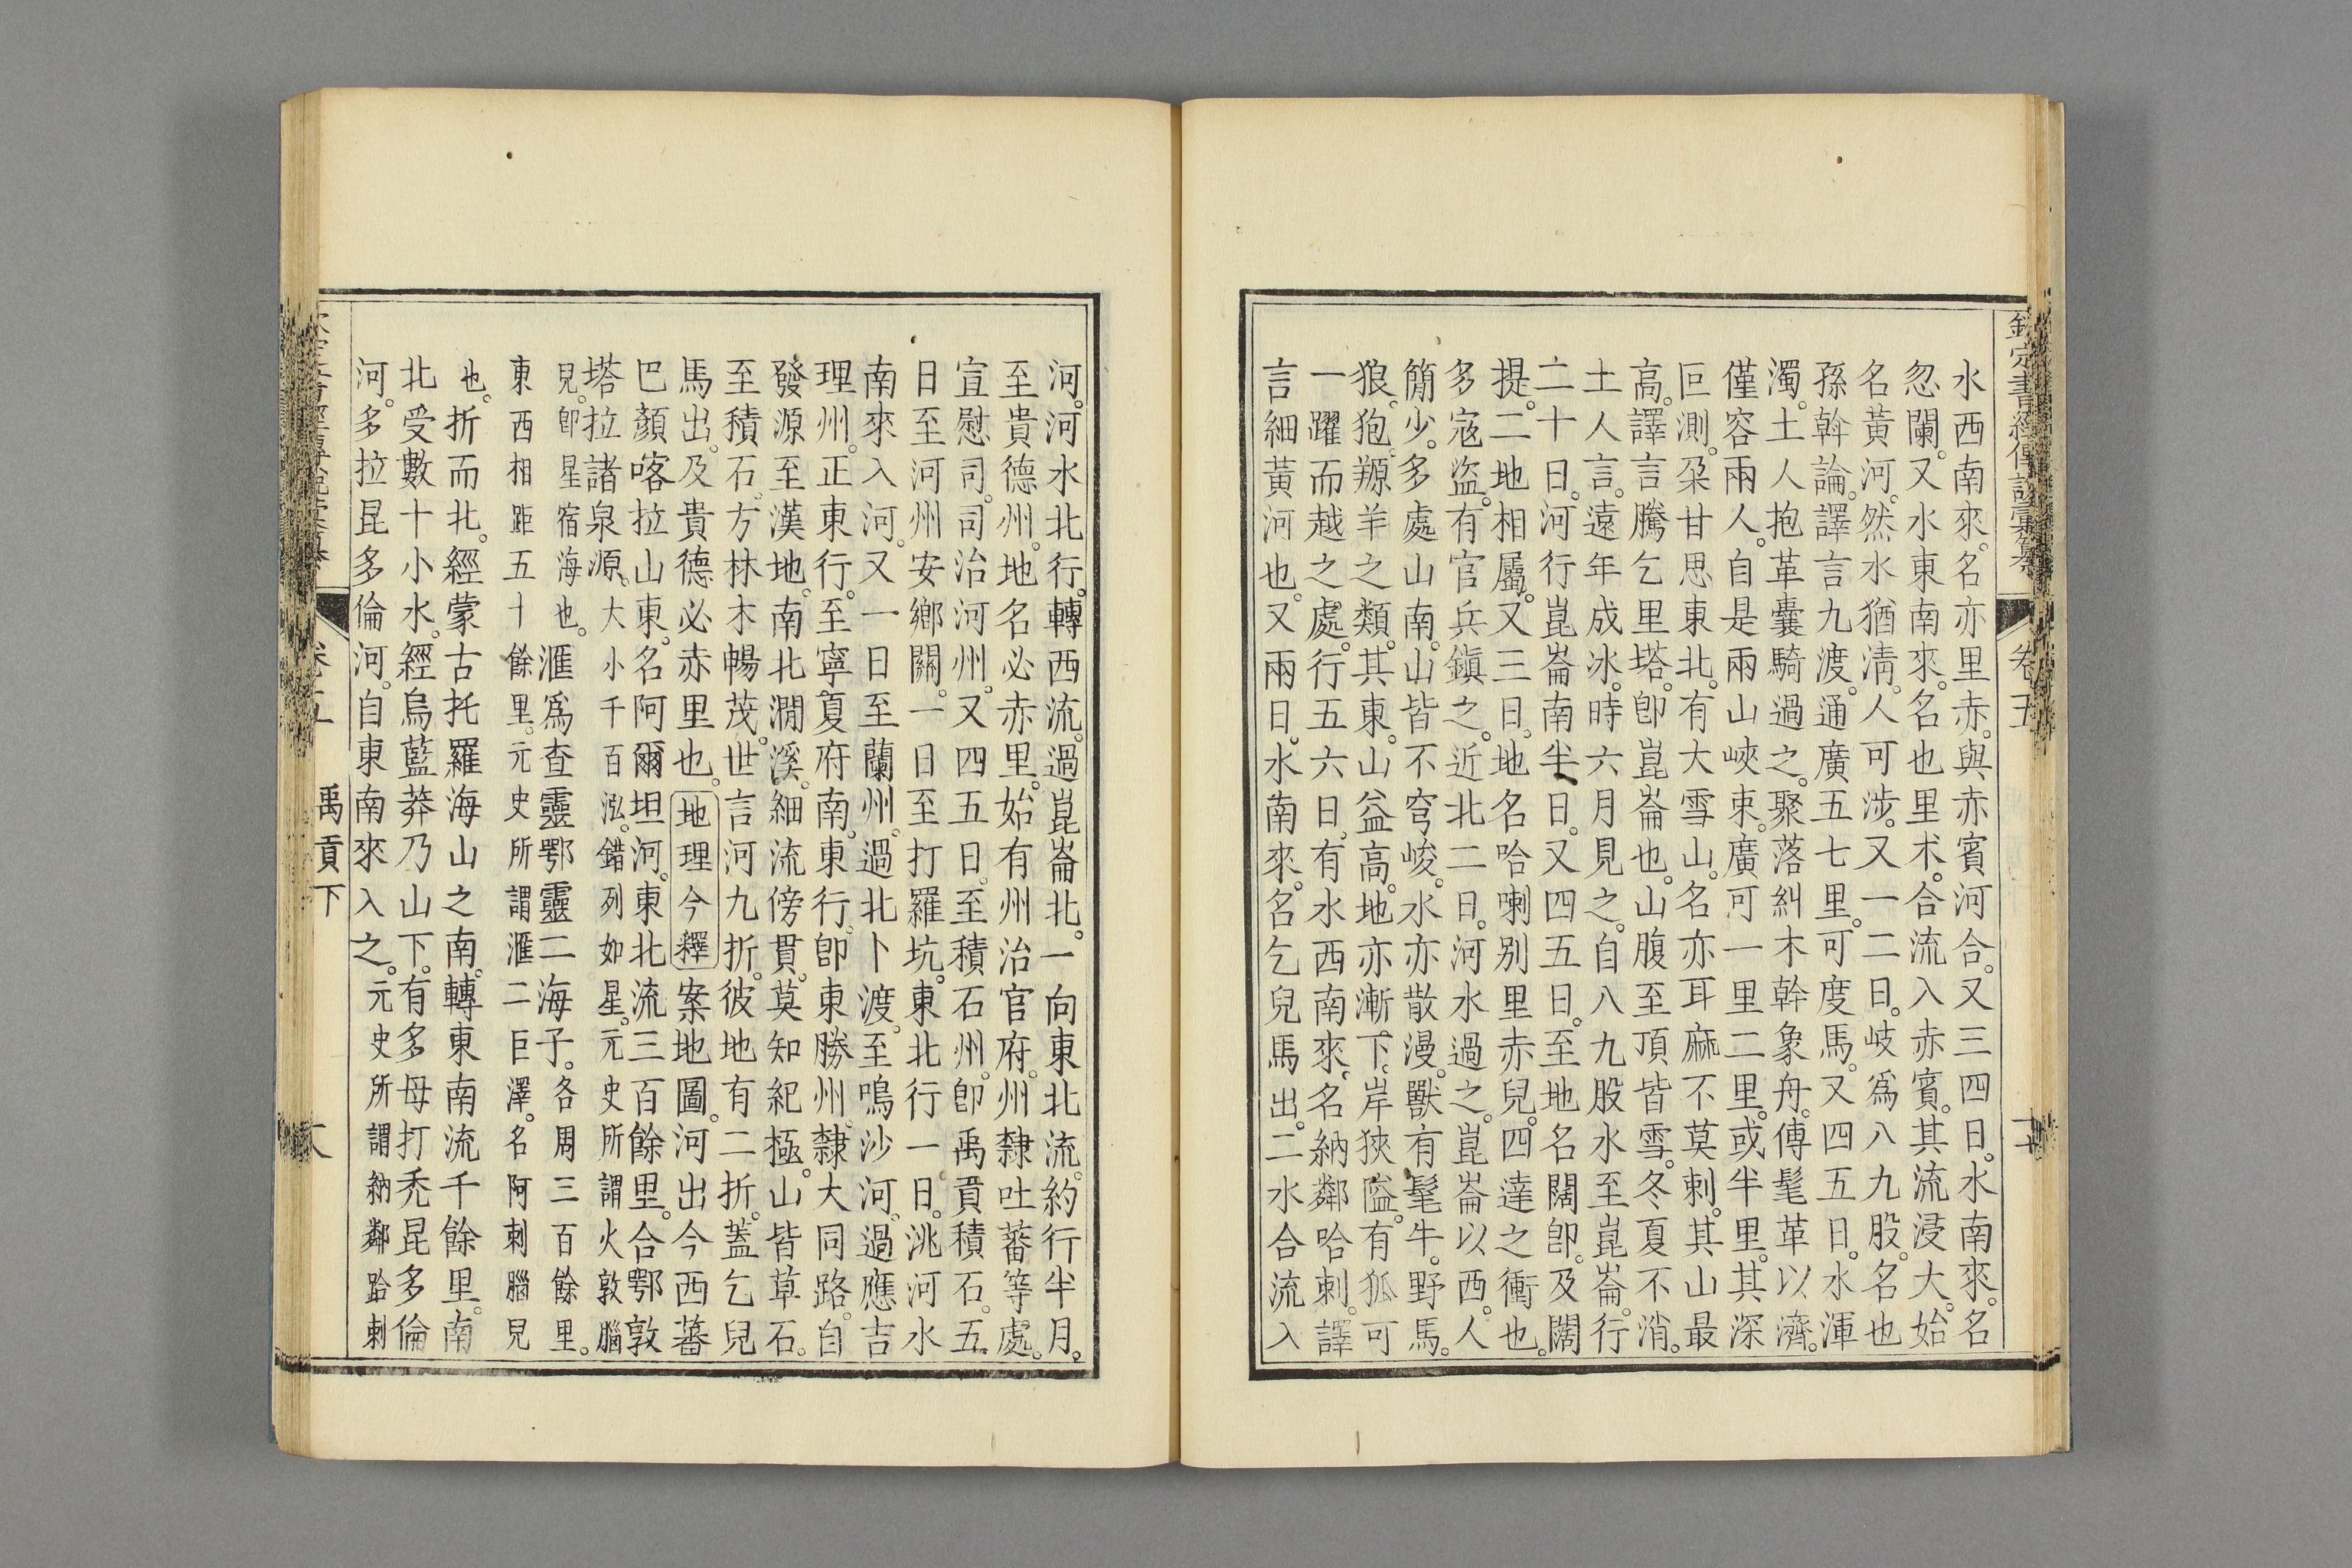 欽定書經傳說彙纂
卷五
水西南來。名亦里赤。與赤賓河合。又三四日。水南來。名
忽闌。又水東南來。名也里朮。合流入赤賓。其流浸大。始
名黃河。然水猶清。人可涉。又一二日。岐爲八九股。名也
孫斡論。譯言九渡。通廣五七里。可度馬。又四五日。水渾
濁。土人抱革囊騎過之。聚落糾木幹象舟。傅髦革以濟。
僅容兩人。自是兩山峽束。廣可一里二里。或半里。其深
叵測。朶甘思東北。有大雪山。名亦耳麻不莫剌。其山最
高。譯言騰乞里塔。卽崑崙也。山腹至頂皆雪。冬夏不消。
土人言。遠年成冰。時六月見之。自八九股水至崑崙。行
二十日。河行崑崙南半日。又四五日。至地名闊卽。及闊
提。二地相屬。又三日。地名哈喇別里赤兒。四達之衝也。
多寇盜。有官兵鎮之。近北二日。河水過之。崑崙以西。人
簡少。多處山南。山皆不穹峻。水亦散漫。獸有髦牛。野馬。
狼。狍。羱羊之類。其東。山益高。地亦漸下。岸狹隘。有狐可
一躍而越之處。行五六日。有水西南來。名納鄰哈剌。譯
言細黃河也。又兩日。水南來。名乞兒馬出。二水合流入
河。河水北行。轉西流。過崑崙北。一向東北流。約行半月。
至貴德州。地名必赤里。始有州治官府。州隸吐蕃等處。
宣慰司。司治河州。又四五日。至積石州。卽禹貢積石。五
日至河州安鄉關。一日至打羅坑。東北行一日。洮河水
南來入河。又一日至蘭州。過北卜渡。至鳴沙河。過應吉
理州。正東行。至寧夏府南。東行。卽東勝州。隸大同路。自
發源至漢地。南北澗溪。細流傍貫。莫知紀極。山皆草石。
至積石。方林木暢茂。世言河九折。彼地有二折。蓋乞兒
馬出。及貴德必赤里也。地理今釋案地圖。河出今西蕃
巴顏喀拉山東。名阿爾坦河。東北流三百餘里。合鄂敦
塔拉諸泉源。大小千百泓。錯列如星。元史所謂火敦腦
兒。卽星宿海也。滙爲查靈鄂靈二海子。各周三百餘里。
東西相距五十餘里。元史所謂滙二巨澤。名阿剌腦兒
也。折而北。經蒙古托羅海山之南。轉東南流千餘里。南
北受數十小水。經烏藍莽乃山下。有多母打禿昆多倫
河。多拉昆多倫河。自東南來入之。元史所謂納鄰哈剌
禹貢下